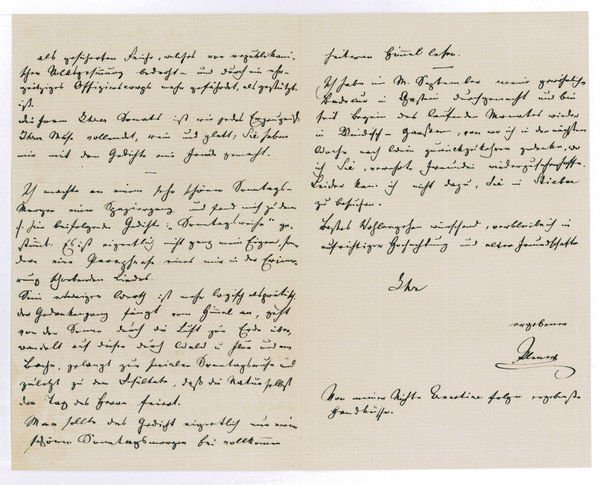 als gesicherten Reiche, welches von republikani-
scher Volksgesinnung bedroht – und durch ein ehr-
geiziges Offizierscorps mehr gefährdet, als gestützt
ist.
Die Form Ihres Sonetts ist wie jedes Erzeugniß
Ihrer Muse vollendet, rein und glatt; Sie haben
mir mit dem Gedichte eine Freude gemacht.
Ich machte an einem sehr schönen Sonntags-
Morgen einen Spaziergang und fand mich zu dem
beifolgenden Gedicht: „Sonntagsruhe“ ge-
stimmt. Es ist eigentlich nicht ganz mein Eigen, son-
dern eine Paraphrase eines mir in der Erinne-
rung schwebenden Liedes.
Sein etwaiger Werth ist mehr logisch als poetisch.
Der Gedankengang fängt vom Himmel an, geht
von der Sonne durch die Luft zur Erde über,
wandelt auf dieser durch Wald u Flur und am
Bache, gelangt zur socialen Sonntagsruhe und
zuletzt zu dem Resultate, daß die Natur selbst
den Tag des Herrn feiert.
Man sollte das Gedicht eigentlich nur einen
schönen Sonntagsmorgen bei vollkommen
heiteren Himmel lesen.
Ich habe im M. September meine gewöhnliche
Badecur in Gastein durchgemacht und bin
seit Beginn des laufenden Monates wieder
in von wo ich in der nächsten
Woche nach Wien zurückzukehren gedenke, wo
ich Sie, verehrte Freundin wiederzusehen hoffe.
Leider kam ich nicht dazu, Sie in
zu besuchen.
Bestes Wohlergehen wünschend, verbleibe ich in
aufrichtiger Hochachtung und alter Freundschaft
Ihr
ergebener
Plener
Von meiner Nichte Ernestine folgen ergebenste
Handküsse.